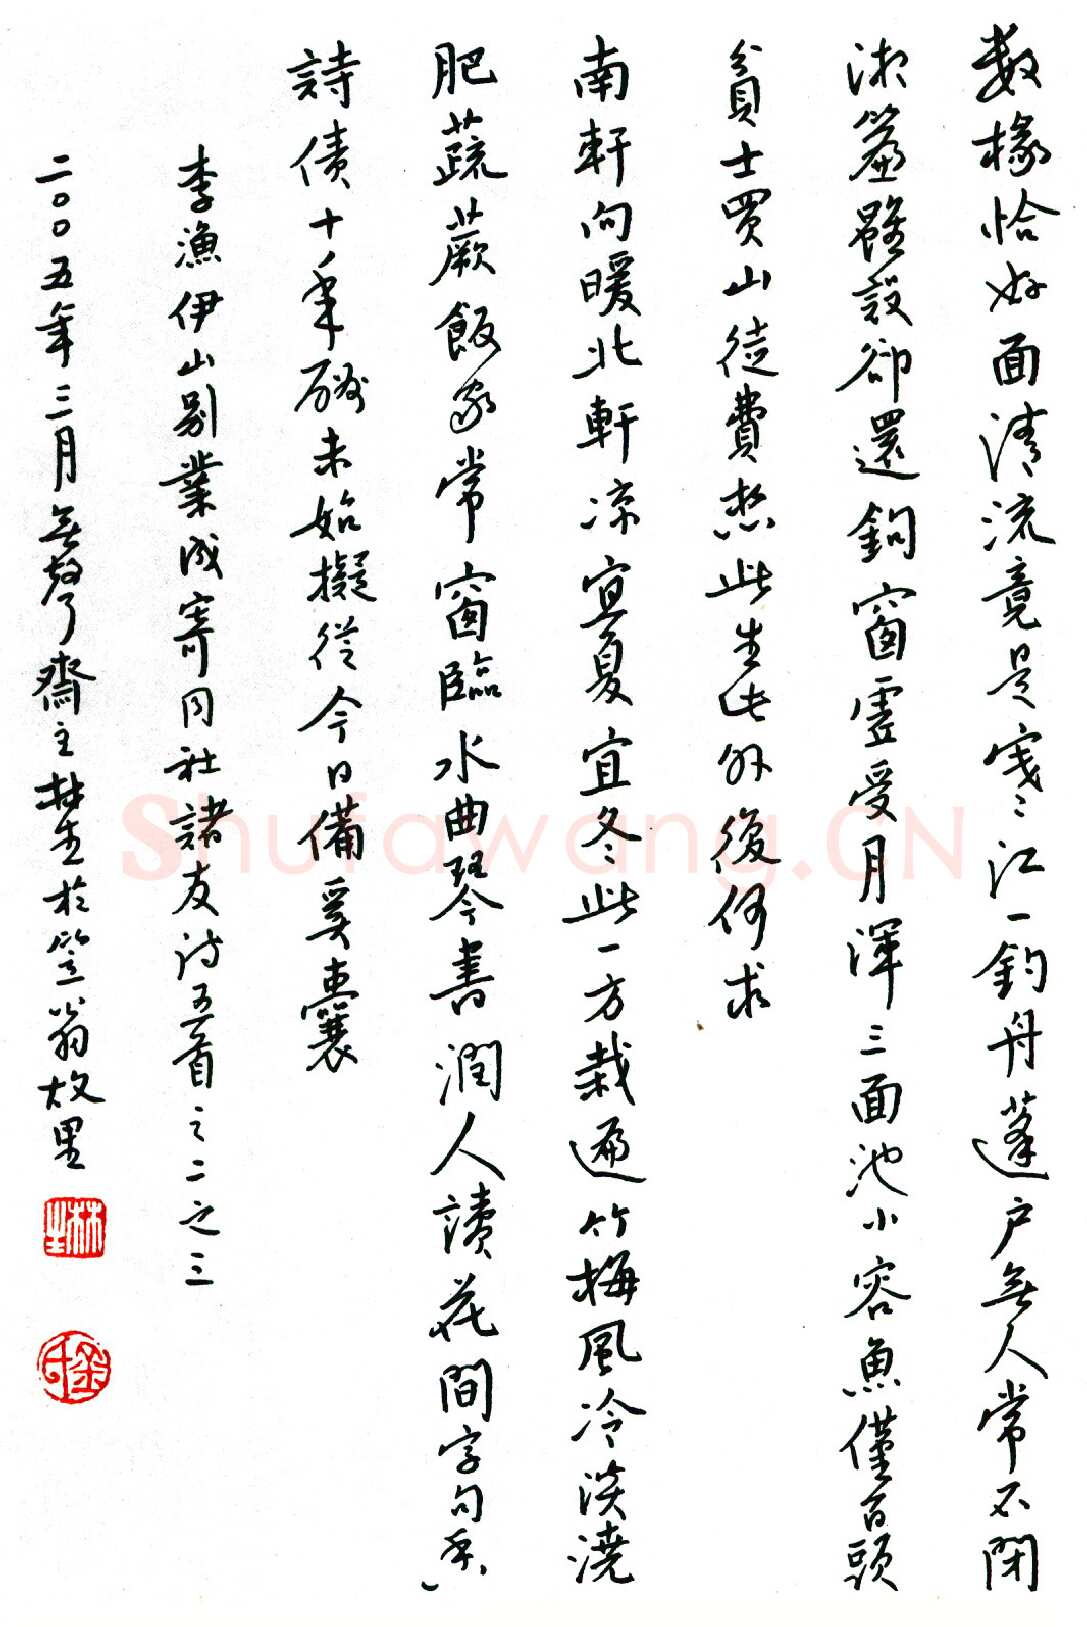 數椽恰好面清流竟是寒江一釣舟蓬戶無人常不閉
湘簾雖設卻還鉤窗虛受月渾三面池小容魚僅百頭
貧士買山徒費愁此生此外復何求
南軒向暖北軒凉宜夏宜冬此一方栽遍竹梅風冷淡澆
肥蔬蕨飯家常窗臨水曲琴書潤人讀花間字句香
詩債十年酬未始擬從今日備奚囊
李漁伊山別業成寄同社諸友詩五首之二之三
二〇〇五年三月無齋主林於笠翁故里
Shufawang.CN